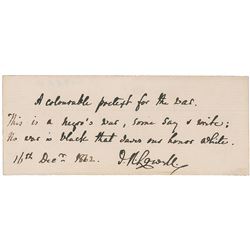 A colourable pretext for the war.
This is a negro's war, some say & write;
No war is black that saves our honor white.
11th Decr. 1862. J. R. Lowell.